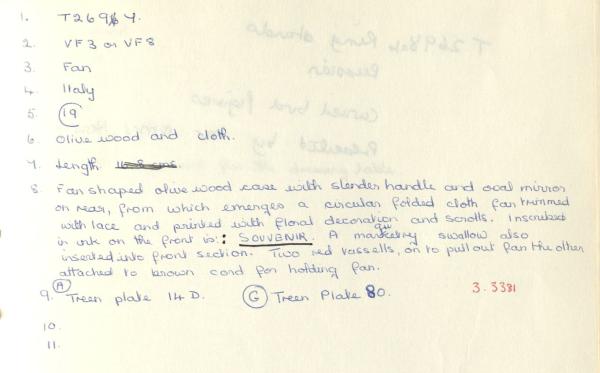 1. T269 Y.
2. VF3 or VF8
3. Fan
4. Italy
5. 19
6. Olive wood and cloth.
7. Length 11.8 cms
8. Fan shaped olive wood case with slender handle and oval mirror
on rear, from which emerges a circular folded cloth fan trimmed
with lace and printed with floral decoration and scrolls. Inscribed
in ink on the front is: SOUVENIR. A marquetry swallow also
inserted into front section. Two red tassells, on to pull out fan the other
attached to brown cord for holding fan.
9. (A) Treen plate 14 D. (G) Treen Plate 80. 3.3381
10.
11.